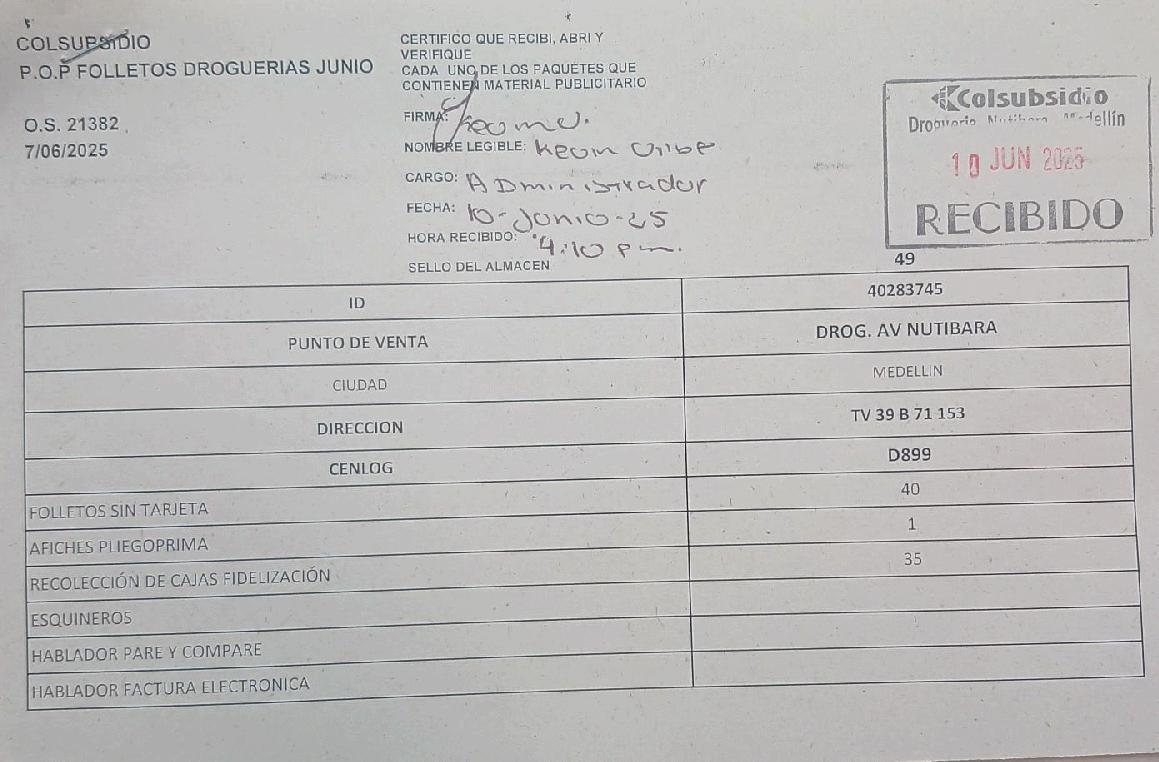 COLSUBSIDIO
P.O.P FOLLETOS DROGUERIAS JUNIO
O.S. 21382
7/06/2025
CERTIFICO QUE RECIBI, ABRI Y
VERIFIQUE
CADA UNO DE LOS PAQUETES QUE
CONTIENEN MATERIAL PUBLICITARIO
FIRMA:
NOMBRE LEGIBLE: Kevin Uribe
CARGO: Administrador
FECHA: 10-Junio-25
HORA RECIBIDO: 4:10 pm.
SELLO DEL ALMACEN
Colsubsidio
Droguería Nutibara Medellín
10 JUN 2025
RECIBIDO
49
ID 40283745
PUNTO DE VENTA DROG. AV NUTIBARA
CIUDAD MEDELLIN
DIRECCION TV 39 B 71 153
CENLOG D899
FOLLETOS SIN TARJETA 40
AFICHES PLIEGOPRIMA 1
RECOLECCIÓN DE CAJAS FIDELIZACIÓN 35
ESQUINEROS
HABLADOR PARE Y COMPARE
HABLADOR FACTURA ELECTRONICA